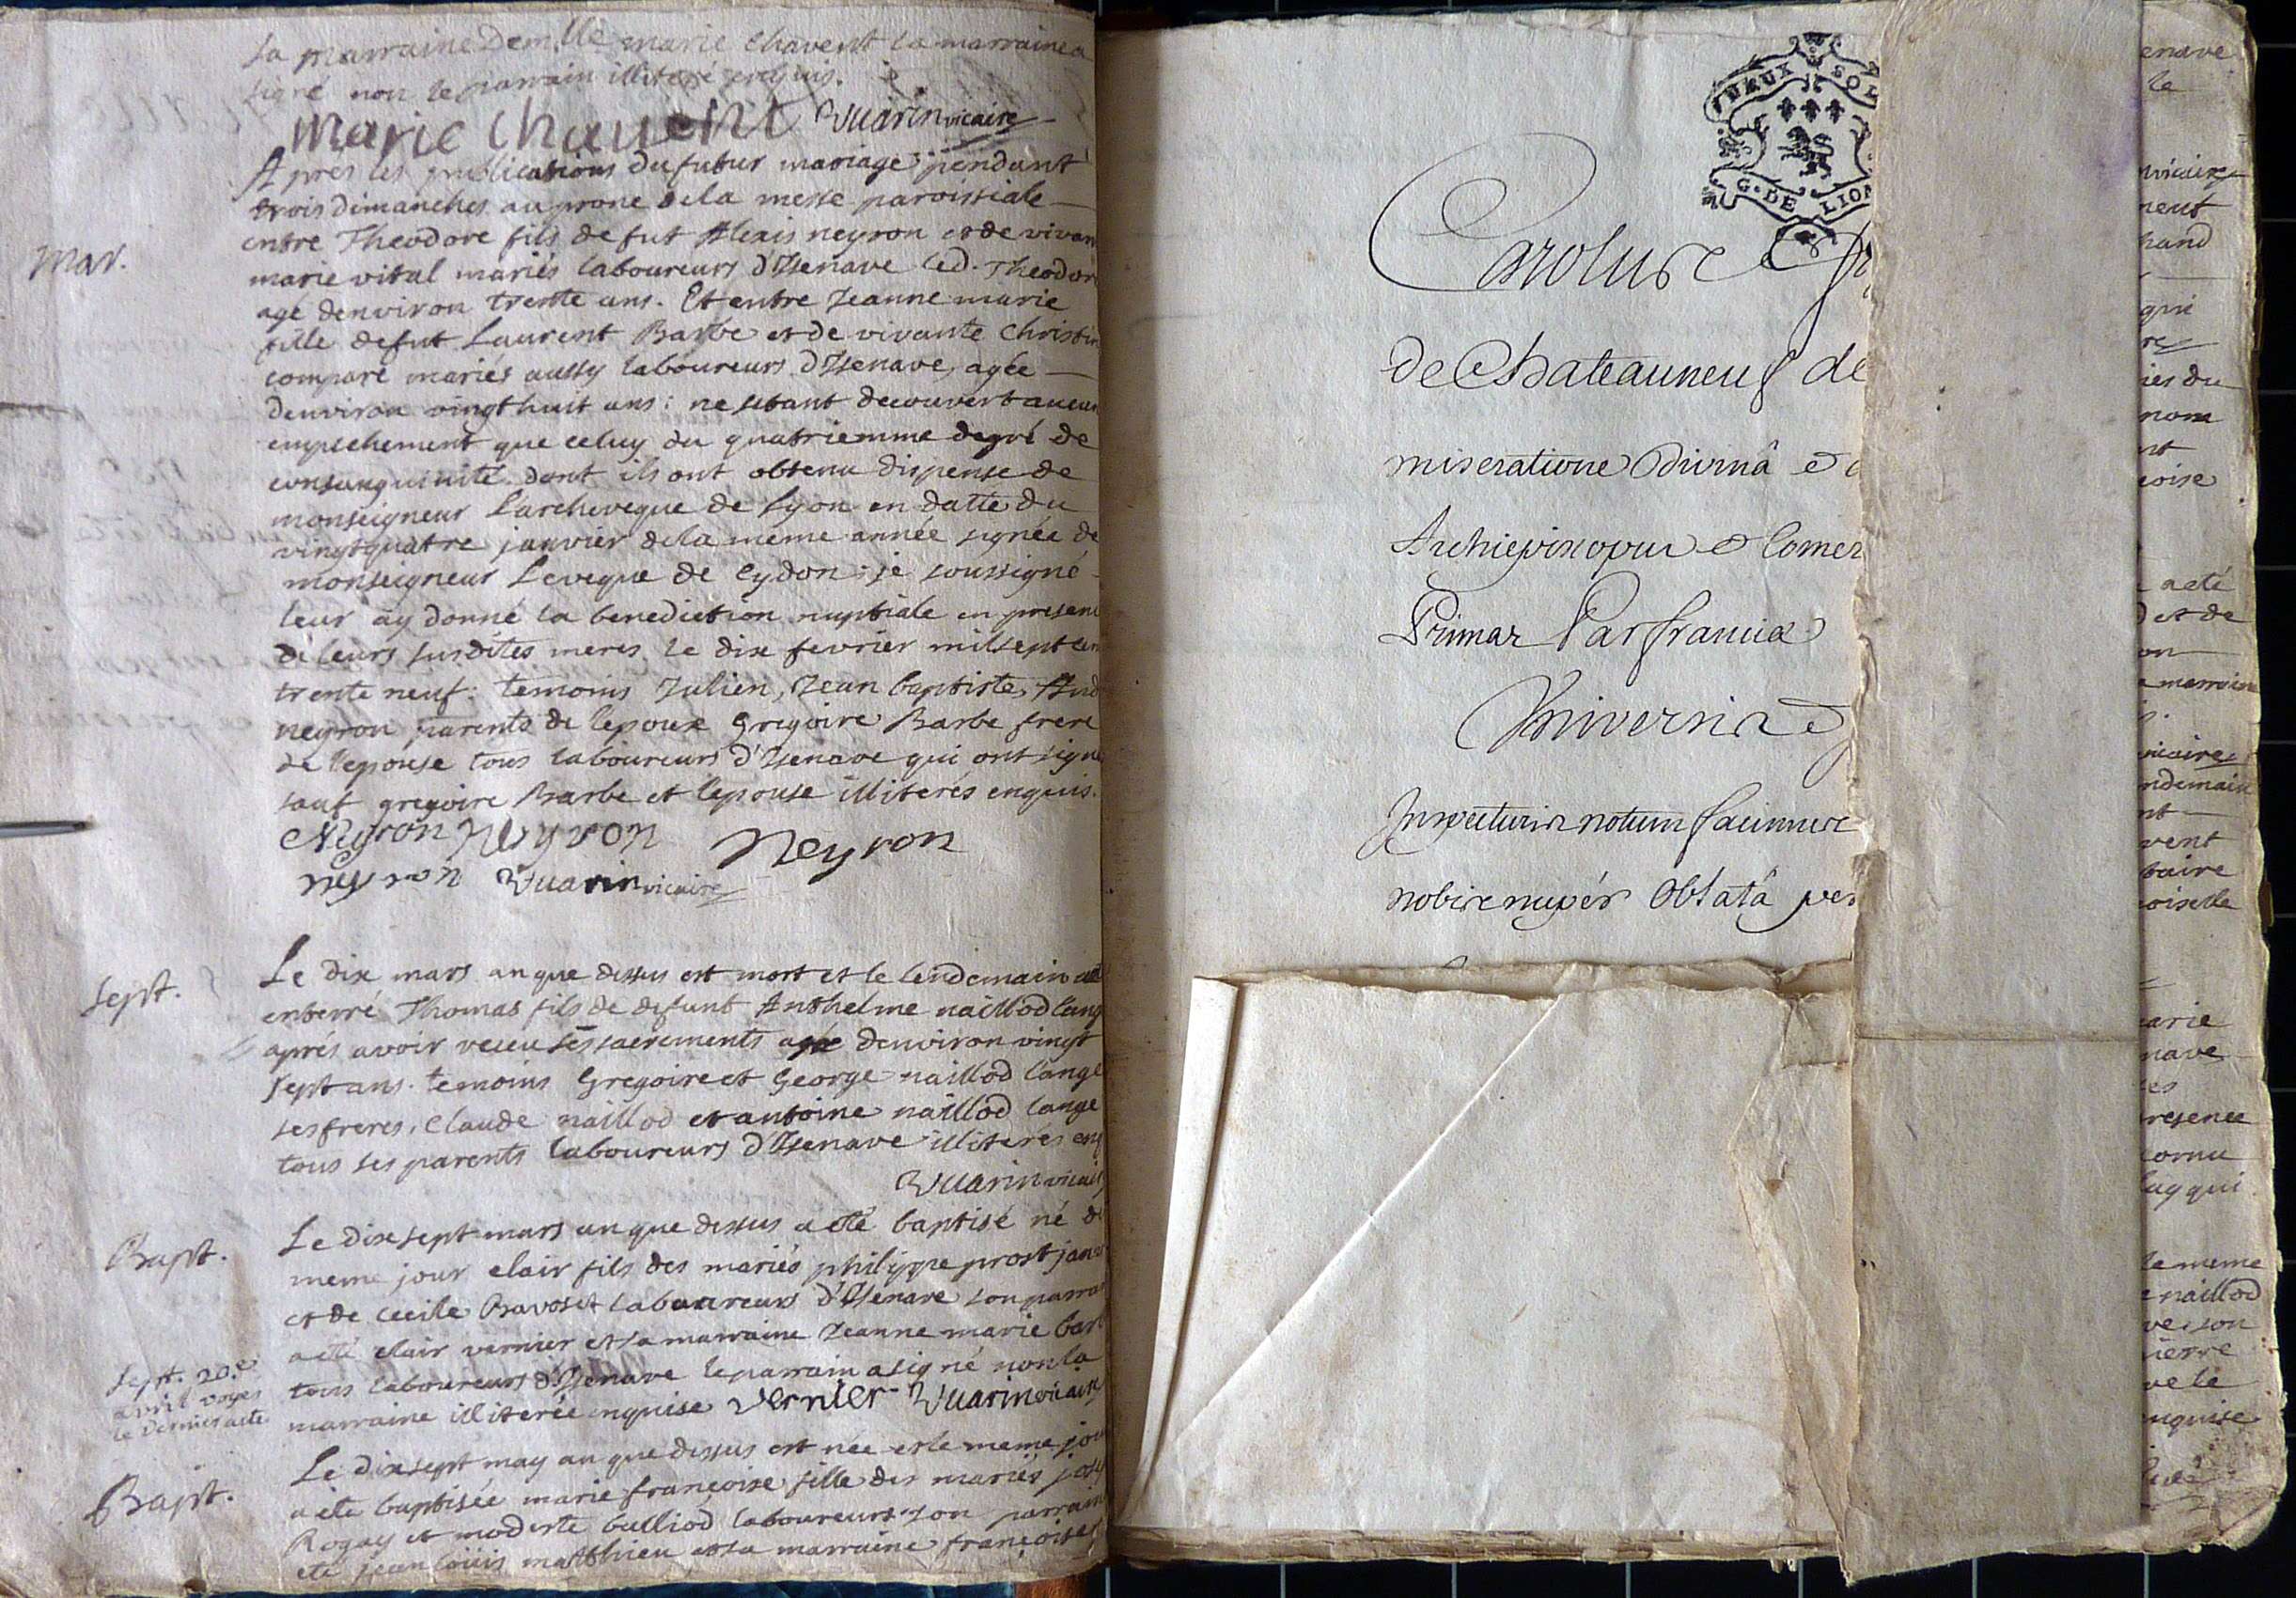 sa marraine Demlle marie Chavent la marraine a
signé non le parrain illiteré enquis.
marie Chauent Vuarin vicaire
Mar.
Après les publications du futur mariage pendant
trois dimanches au prone de la messe paroissiale
entre Theodore fils de fut Alexis neyron et de vivan
marie vital mariés laboureurs d'Izenave led. Theodor
agé denviron trente ans. Et entre Jeanne marie
fille de fut Laurent Barbe et de vivante Christin
comparé mariés aussy laboureurs d'Izenave, agée
denviron vingt huit ans: ne setant decouvert aucun
empechement que celuy du quatriemme degré de
consanguinité dont ils ont obtenu dispense de
monseigneur L'archeveque de Lyon en datte du
vingtquatre janvier de la meme année signée de
monseigneur Leveque de Cydon; je soussigné
leur ay donné la benediction nuptiale en presen
de leurs susdites meres le dix fevrier mil sept cen
trente neuf: temoins Julien, Jean baptiste, And
neyron parents de lepoux Gregoire Barbe frere
de l'epouse tous laboureurs d'Izenave qui ont signé
sauf gregoire Barbe et lepouse illiterés enquis.
Neyron Neyron Neyron
neyron Vuarin vicaire
Sept.
Le dix mars an que dessus est mort et le lendemain a eté
enterré Thomas fils de defunt Anthelme naillod lang
aprés avoir receu ses sacrements agé denviron vingt
sept ans. temoins Gregoire et George naillod lange
ses freres, Claude naillod et antoine naillod lange
tous ses parents laboureurs d'Izenave illiterés enq
Vuarin vicaire
Bapt.
Le dix sept mars an que dessus a eté baptisé né d
meme jour clair fils des mariés philippe prost jan
et de cecile Bavoset laboureurs d'Izenave son parrai
a eté clair vernier et sa marraine Jeanne marie barb
tous laboureurs d'Izenave le parrain a signé non la
marraine illiterée enquise Vernier Vuarin vicaire
Sept. 20e
avril voyes
le dernier acte
Bapt.
Le dix sept may an que dessus est née et le meme jou
a eté baptisée marie françoise fille des mariés jose
Rogay et modeste bulliod laboureurs son parrain
eté jean loüis matthieu et sa marraine françoise
DEUX SOL
G. DE LION
Carolus
de Chateauneuf de
miseratione Divinâ &
Archiepiscopus & Comes
Primas
Universis &
Inspecturis notum facimus
nobis nupér Oblatâ per
enave
le
vicaire
nent
hand
qui
re
ies du
nom
nt
coise
acté
d et de
on
a marraine
vicaire
ndemain
nt
vent
taire
oiselle
arie
nave
es
resence
cornu
luy qui
le meme
naillod
ve, son
ierre
ve le
nquise